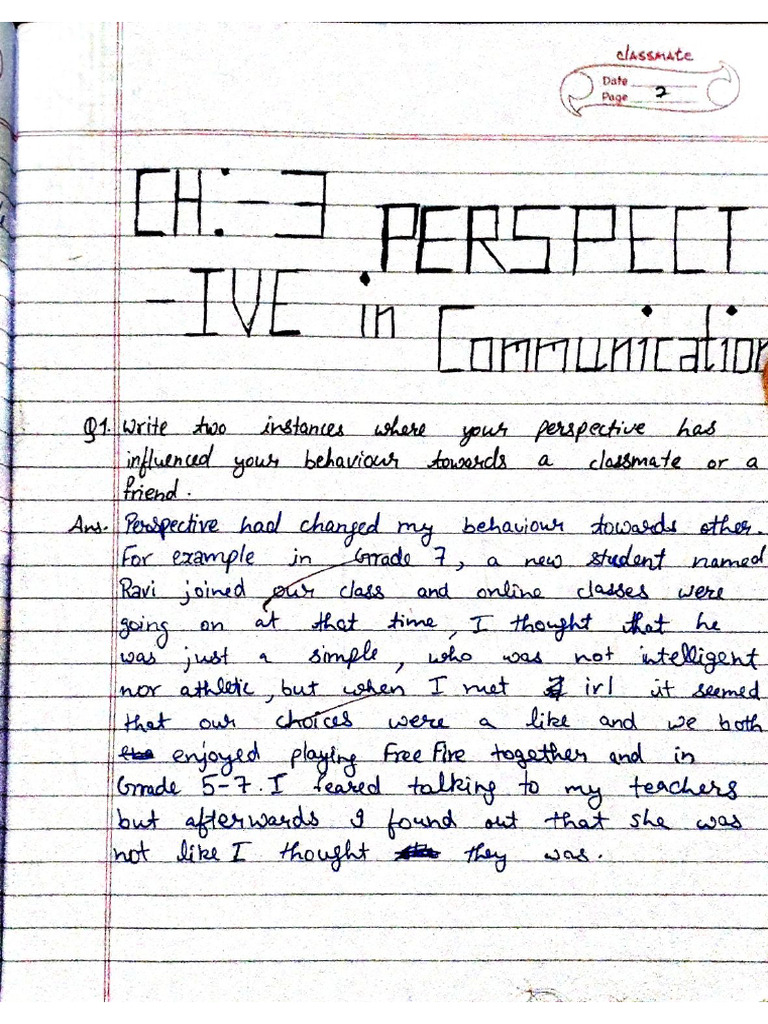 classmate
Date
Page 2
CH:- 3 PERSPECT
-IVE in Communication
Q1. Write two instances where your perspective has
influenced your behaviour towards a classmate or a
friend.
Ans. Perspective had changed my behaviour towards other.
For example in Grade 7, a new student named
Ravi joined our class and online classes were
going on at that time, I thought that he
was just a simple, who was not intelligent
nor athletic, but when I met irl it seemed
that our choices were a like and we both
enjoyed playing Free Fire together and in
Grade 5-7. I feared talking to my teachers
but afterwards I found out that she was
not like I thought they was.